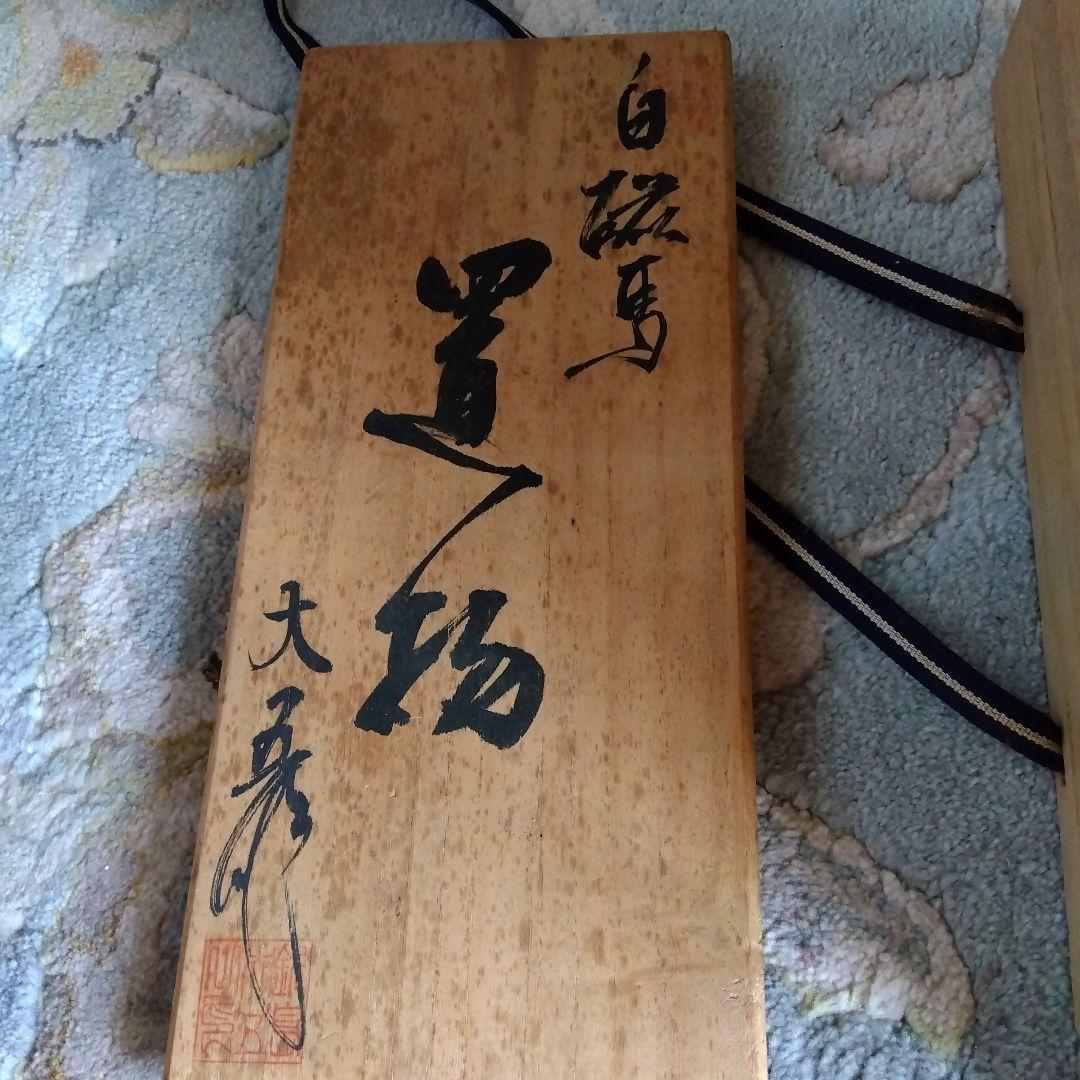 白磁馬
置物
大